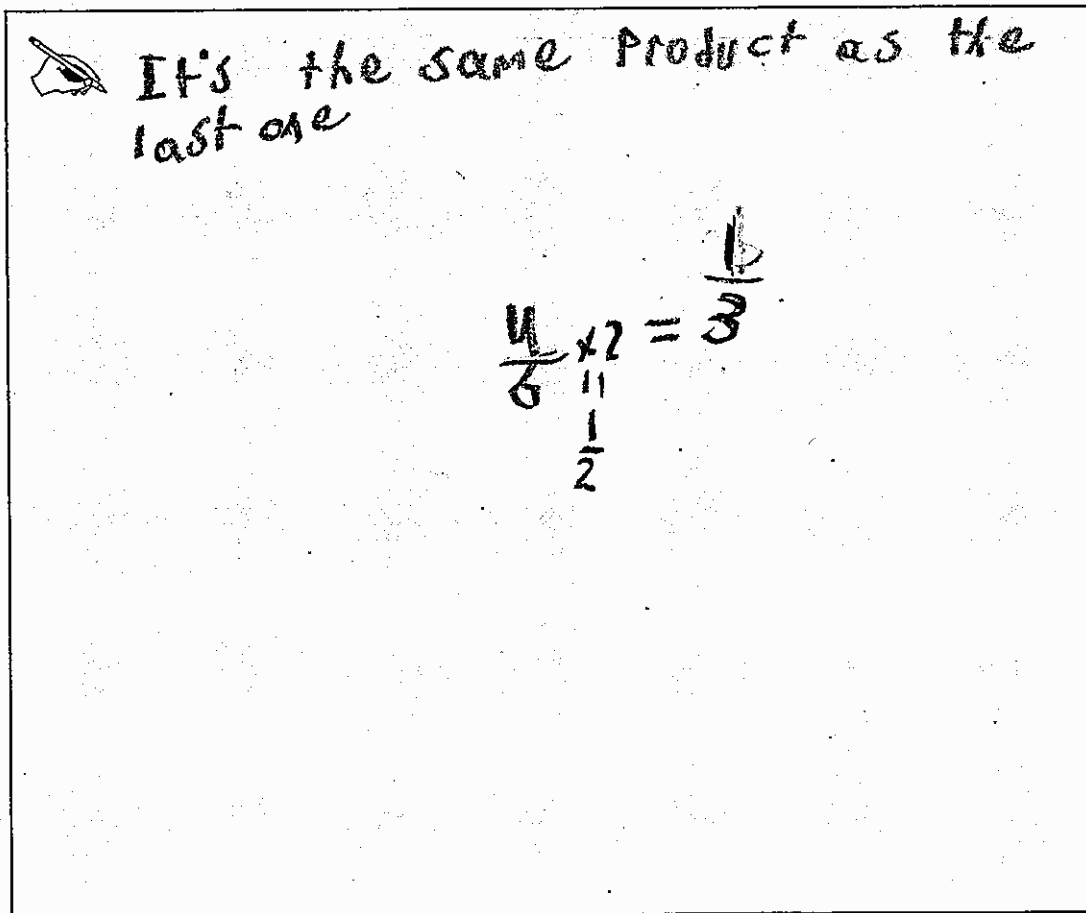 It's the same product as the
last one
4/6 x2 = /3
11
1/2